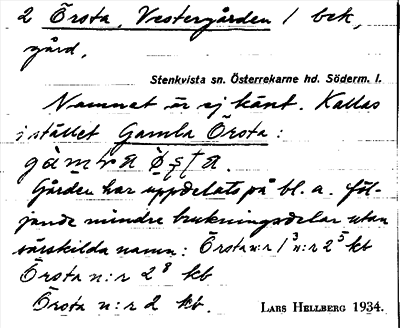 2 Örsta, Vestergården 1 bek,
gård.
Stenkvista sn. Österrekarne hd. Söderm. l.
Namnet är ej känt. Kallas
i stället Gamla Örsta:
Gården har uppdelats på bl. a. föl-
jande mindre brukningsdelar utan
särskilda namn: Örsta n:r 1³ n:r 2⁵ kb
Örsta n:r 2⁸ kb
Örsta n:r 2 kb.
LARS HELLBERG 1934.